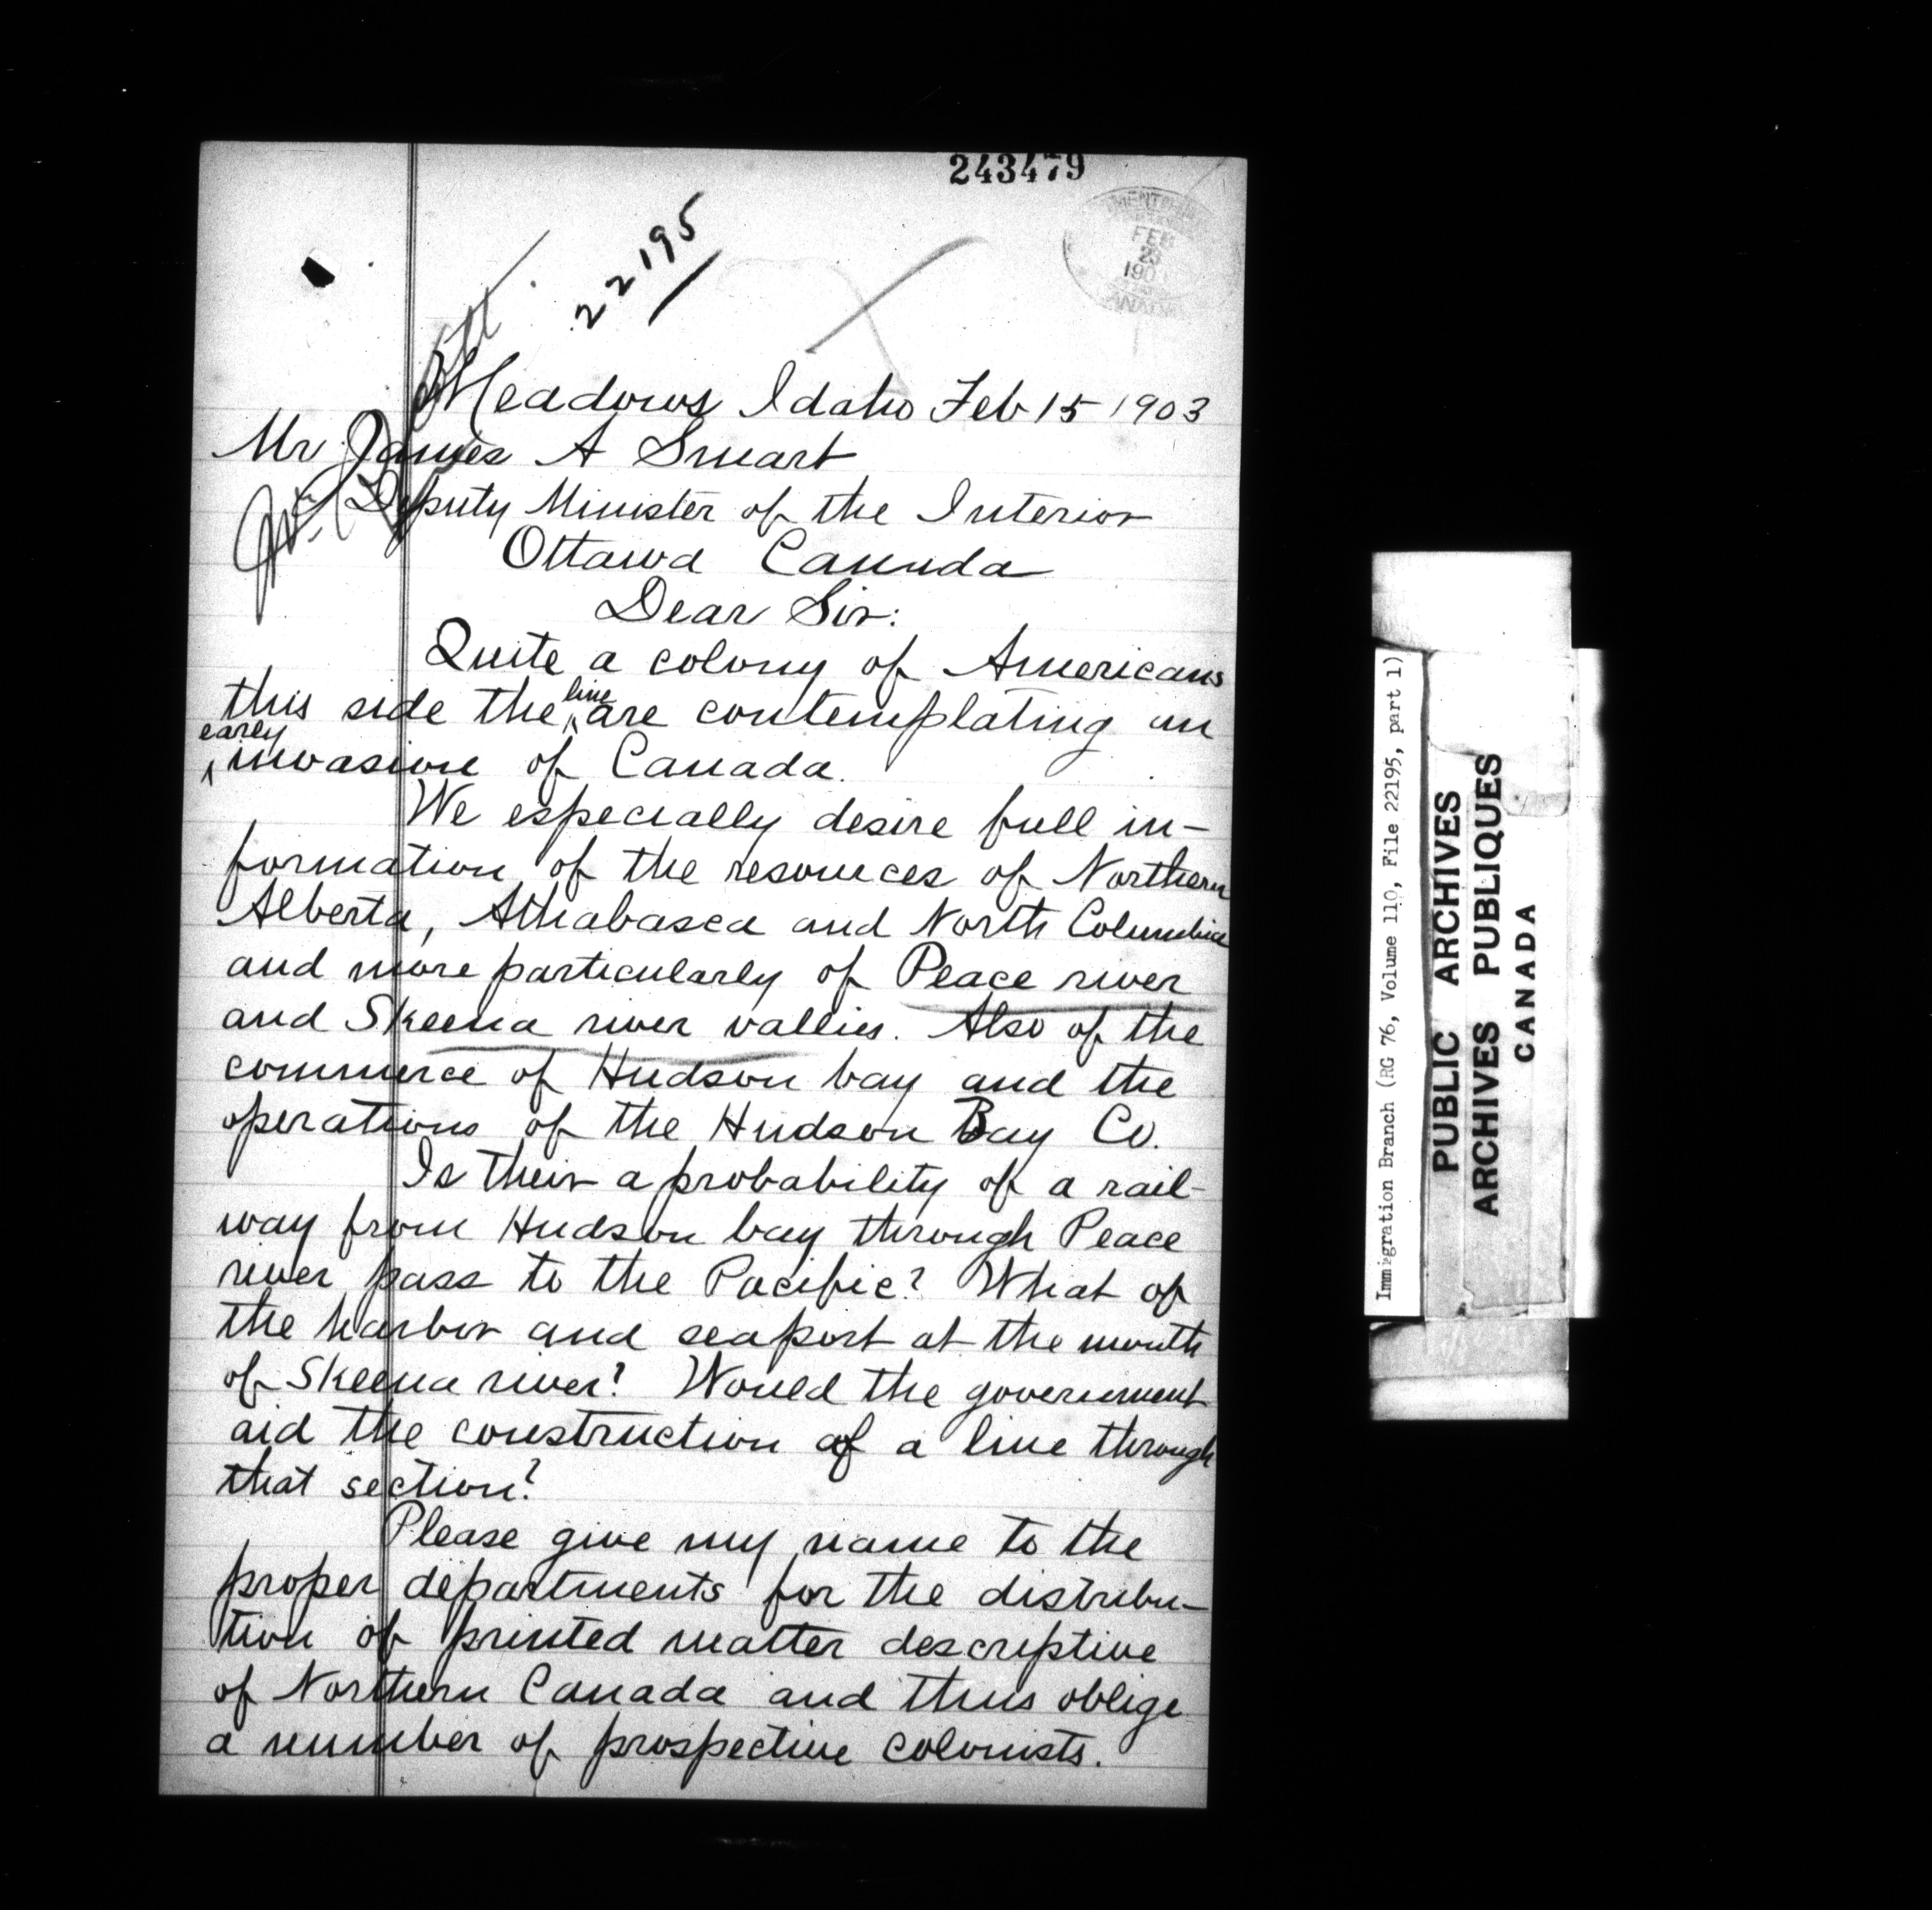 243479
FEB
23
190
22195
Meadows Idaho Feb 15 1903
Mr James A Smart
Deputy Minister of the Interior
Ottawa Canada
Dear Sir:
Quite a colony of Americans
this side the line are contemplating an
early invasion of Canada.
We especially desire full in-
formation of the resources of Northern
Alberta, Athabasca and North Columbia
and more particularly of Peace river
and Skeena river vallies. Also of the
commerce of Hudson bay and the
operations of the Hudson Bay Co.
Is their a probability of a rail-
way from Hudson bay through Peace
river pass to the Pacific? What of
the harbor and seaport at the mouth
of Skeena river? Would the government
aid the construction of a line through
that section?
Please give my name to the
proper departments for the distribu-
tion of printed matter descriptive
of Northern Canada and thus oblige
a number of prospective colonists.
Immigration Branch (RG 76, Volume 110, File 22195, part 1)
PUBLIC ARCHIVES
ARCHIVES PUBLIQUES
CANADA